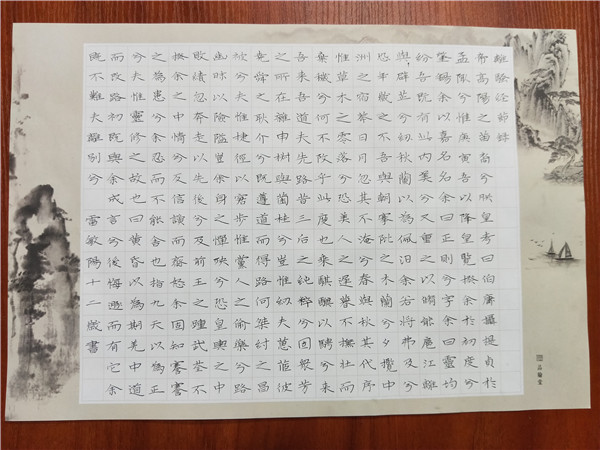 離騷經節錄
帝高陽之苗裔兮朕皇考曰伯庸攝提貞於
孟陬兮惟庚寅吾以降皇覽揆余於初度兮
肇錫余以嘉名名余曰正則兮字余曰靈均
紛吾既有此內美兮又重之以脩能扈江離
與辟芷兮紉秋蘭以為佩汩余若將弗及兮
恐年歲之不吾與朝之木蘭兮夕攬中
洲之宿莽日月忽其不淹兮春與秋其代序
惟草木之零落兮恐美人之遲暮不撫壯而
棄穢兮何不改乎此度也乘騏驥以騁兮來
吾來吾道夫先路昔三后之純粹兮固眾芳
之所在雜申椒與菌桂兮豈惟紉夫蕙茝彼
堯舜之耿介兮既遵道而得路何桀紂之昌
被兮夫惟捷徑以窘步惟黨人之偷樂兮路
幽昧以險隘豈余身之憚殃兮恐皇輿之
敗績忽奔走以先後兮及前王之踵武荃不
揆余之中情兮反信讒而齌怒余固知謇謇
之為患兮忍而不能舍也指九天以為正
兮夫惟靈脩之故也曰黃昏以為期兮羌中道
而改路初既與余成言兮後悔遁而有它余
既不難夫離別兮 雷敏陽十二歲書